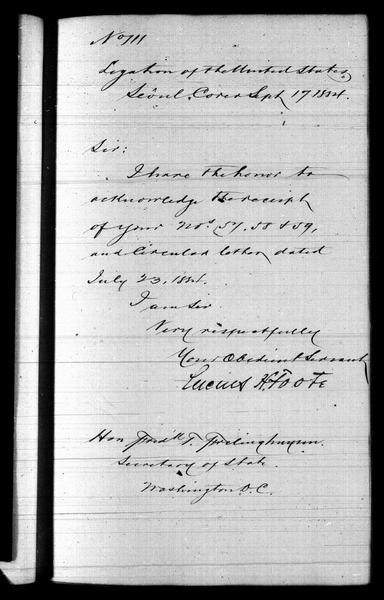 No 111
Legation of the United States
Seöul, Corea Sept 17 1884.
Sir:
I have the honor to
acknowledge the receipt
of your Nos 57, 58 & 59,
and Circular letter dated
July 23, 1884.
I am Sir
Very respectfully
Your Obedient Servant
Lucius H. Foote
Hon Fredk T. Frelinghuysen.
Secretary of State
Washington D.C.